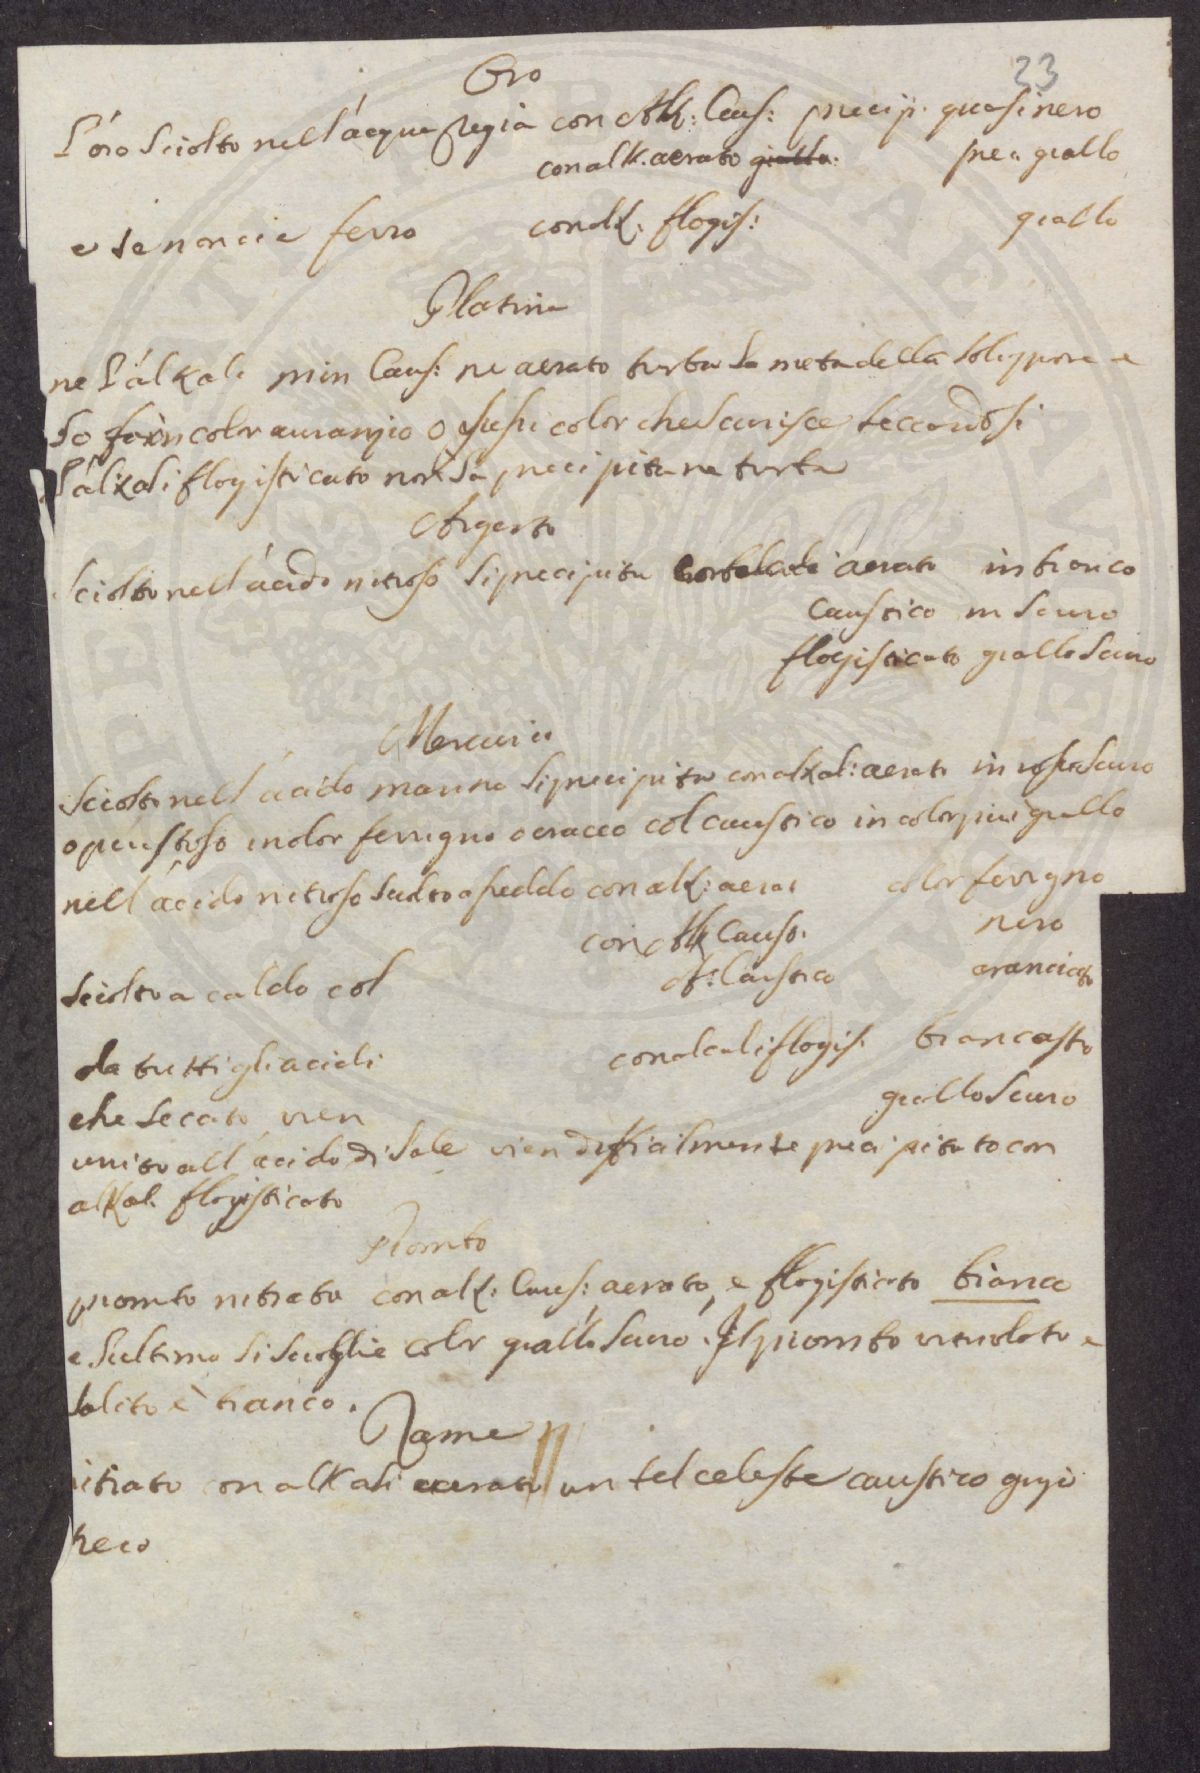 33
Oro
L'óro Sciolto nell'ácqua Regia con Alk: Caus: precip. quasi nero
con alk. aerato giallo: pre: giallo
e se non ci è ferro con alk. flogis: giallo
Platina
ne L'álkali min Caus: ne aerato turba la meta della soluzione e
lo fa in color auranzio o color che scurisce seccandosi
L'álkali flogisticato non la precipita ne turba
Argento
Sciolto nell'ácido nitroso si precipita aerato in bianco
Caustico in scuro
flogisticato giallo Scuro
Mercurio
Sciolto nell'ácido marino si precipita con alkali aerato in rosso Scuro
o piuttosto in color ferrigno o col caustico in color piu giallo
nell'ácido nitroso sciolto a freddo con alk: aerat color ferrigno
con Alk Caust. nero
Sciolto a caldo col A: Caustico aranciato
da tutti gli acidi con alcali flogis. biancastro
che secato vien giallo Scuro
unito all'ácido di Sale vien difficilmente precipitato con
alkal. flogisticato
Piombo
piombo nitrato con alk. Caus: aerato, e flogisticato bianco
e l'ultimo si scioglie color giallo Scuro. Il piombo vitriolato e
salito è bianco.
Rame
nitrato con alkali aerato un bel celeste caustico grigio